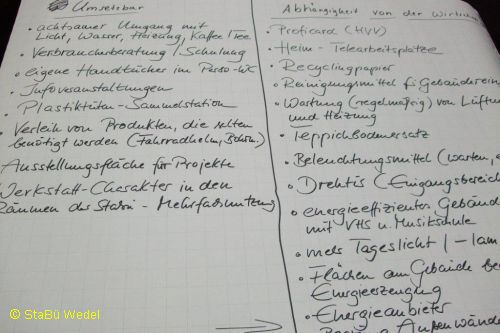 Umsetzbar
• achtsamer Umgang mit
Licht, Wasser, Heizung, Kaffee/Tee
• Verbraucherberatung/Schulung
• eigene Handtücher im Perso-WC
• Infoveranstaltungen
• Plastiktüten-Sammelstation
• Verleih von Produkten, die selten
benötigt werden (Fahrradhelm,
Ausstellungsfläche für Projekte
Werkstatt-Charakter in den
Räumen der Stabü - Mehrfachnutzung
Abhängigkeit von der
• Proficard (HVV)
• Heim-Telearbeitsplätze
• Recyclingpapier
• Reinigungsmittel f.
• Wartung (regelmäßig) von
und Heizung
• Teppichbodenersatz
• Beleuchtungsmittel (warten,
• Drehtür (Eingangsbereich
• energieeffizientes
mit VHS u. Musikschule
• mehr Tageslicht
• Flächen am Gebäude
Energieerzeugung
• Energieanbieter
© StaBü Wedel